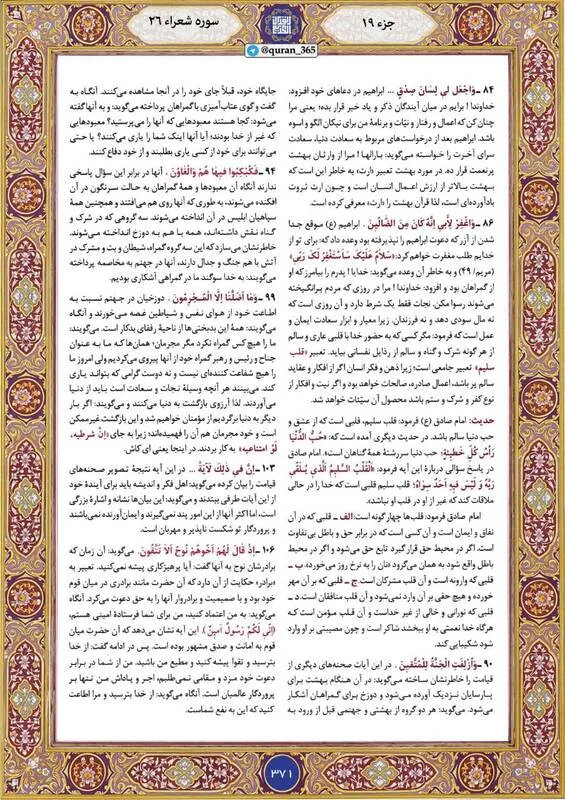 جزء ۱۹
سوره شعراء ۲۶
@quran_365
۸۴ ـ وَاجْعَل لِي لِسَانَ صِدْقٍ ... ابراهیم در دعاهای خود افزود:
خداوندا ! برایم در میان آیندگان ذکر و یاد خیر قرار بده؛ یعنی مرا
چنان کن که اعمال و رفتار و نیّات و برنامهٔ من برای نیکان الگو و اسوه
باشد. ابراهیم بعد از درخواست‌های مربوط به سعادت دنیا، سعادت
سرای آخرت را خواسته می‌گوید: بارالها ! مرا از وارثان بهشت
پرنعمت قرار ده. در مورد بهشت تعبیر «ارث»، به خاطر این است که
بهشت بالاتر از ارزش اعمال انسان است و چون ارث ثروت
بادآورده‌ای است، لذا قرآن بهشت را «ارث» معرفی کرده است.
۸۶ ـ وَاغْفِرْ لِأَبِي إِنَّهُ كَانَ مِنَ الضَّالِّينَ . ابراهیم (ع) موقع جدا
شدن از آزر که دعوت ابراهیم را نپذیرفته بود وعده داد که: برای تو از
خدایم طلب مغفرت خواهم کرد: «سَلامٌ عَلَيْكَ سَأَسْتَغْفِرُ لَكَ رَبِّي»
(مریم/ ۴۹) و به خاطر آن وعده می‌گوید: خدایا ! پدرم را بیامرز که او
از گمراهان بود و افزود: خداوندا ! مرا در روزی که مردم برانگیخته
می‌شوند رسوا مکن. نجات فقط یک شرط دارد و آن روزی است که
نه مال سودی دهد و نه فرزندان. زیرا معیار و ابزار سعادت ایمان و
عمل است که فرمود: مگر کسی که به حضور خدا با قلبی عاری و سالم
از هر گونه شرک و گناه و سالم از رذایل نفسانی بیاید. تعبیر «قلب
سلیم» تعبیر جامعی است؛ زیرا ذهن و فکر انسان اگر از افکار و عقاید
سالم پر باشد، اعمال صادره، صالحات خواهد بود و اگر نیت و افکار از
نوع کفر و شرک و ستم باشد محصول آن سیّئات خواهد شد.
حدیث: امام صادق (ع) فرمود: قلب سلیم، قلبی است که از عشق و
حب دنیا سالم باشد. در حدیث دیگری آمده است که: «حُبُّ الدُّنْيَا
رَأْسُ كُلِّ خَطِيئَةٍ: حب دنیا سررشتهٔ همهٔ گناهان است». امام صادق
در پاسخ سؤالی دربارهٔ این آیه فرمود: «اَلْقَلْبُ السَّلِيمُ الَّذِي يَلْقَى
رَبَّهُ وَ لَيْسَ فِيهِ أَحَدٌ سِوَاهُ: قلب سلیم قلبی است که خدا را در حالی
ملاقات کند که غیر از او در قلب او نباشد».
امام صادق فرمود: قلب‌ها چهار گونه است: الف ـ قلبی که در آن
نفاق و ایمان است و آن کسی است که در برابر حق و باطل بی‌تفاوت
است. اگر در محیط حق قرار گیرد تابع حق می‌شود و اگر در محیط
باطل واقع شود به همان می‌گرود «نان را به نرخ روز می‌خورد». ب ـ
قلبی که وارونه است و آن قلب مشرکان است. ج ـ قلبی که بر آن مهر
خورده و هیچ حقی بر آن وارد نمی‌شود و آن قلب منافقان است. د ـ
قلبی که نورانی و خالی از غیر خداست و آن قلب مؤمن است که
هرگاه خدا نعمتی به او ببخشد شاکر است و چون مصیبتی بر او وارد
شود شکیبایی کند.
۹۰ ـ وَأُزْلِفَتِ الْجَنَّةُ لِلْمُتَّقِينَ . در این آیات صحنه‌های دیگری از
قیامت را خاطرنشان ساخته می‌گوید: در آن هنگام بهشت برای
پارسایان نزدیک آورده می‌شود و دوزخ برای گمراهان آشکار
می‌شود. می‌گوید: هر دو گروه از بهشتی و جهنمی قبل از ورود به
جایگاه خود، قبلاً جای خود را در آنجا مشاهده می‌کنند. آنگاه به
گفت و گوی عتاب‌آمیزی با گمراهان پرداخته می‌گوید: و به آنها گفته
می‌شود: کجا هستند معبودهایی که آنها را می‌پرستید؟ معبودهایی
که غیر از خدا بودند؛ آیا آنها اینک شما را یاری می‌کنند؟ یا حتی
می‌توانند برای خود از کسی یاری بطلبند و از خود دفاع کنند.
۹۴ ـ فَكُبْكِبُوا فِيهَا هُمْ وَالْغَاوُونَ . آنها در برابر این سؤال پاسخی
ندارند آنگاه آن معبودها و همهٔ گمراهان به حالت سرنگون در آن
افکنده می‌شوند، به طوری که آنها روی هم می‌افتند و همچنین همهٔ
سپاهیان ابلیس در آن انداخته می‌شوند. سه گروهی که در شرک و
گناه نقش داشته‌اند، همه با هم به دوزخ انداخته می‌شوند.
خاطرنشان می‌سازد که این سه گروه گمراه، شیطان و بت و مشرک در
آتش با هم جنگ و جدال دارند، آنها در جهنم به مخاصمه پرداخته
می‌گویند: به خدا سوگند ما در گمراهی آشکاری بودیم.
۹۹ ـ وَمَا أَضَلَّنَا إِلَّا الْمُجْرِمُونَ . دوزخیان در جهنم نسبت به
اطاعت خود از هوای نفس و شیاطین غصه می‌خورند و آنگاه
می‌گویند: همهٔ این بدبختی‌ها از ناحیهٔ رفقای بدکار است. می‌گویند:
ما را هیچ کس گمراه نکرد مگر مجرمان؛ همان‌ها که ما به عنوان
جناح و رئیس و رهبر گمراه خود از آنها پیروی می‌کردیم ولی امروز ما
را هیچ شفاعت کننده‌ای نیست و نه دوست گرامی که بتواند یاری
کند. می‌بینند هر آنچه وسیلهٔ نجات و سعادت است باید از دنیا
می‌آوردند. لذا آرزوی بازگشت به دنیا می‌کنند و می‌گویند: اگر بار
دیگر به دنیا برگردیم از مؤمنان خواهیم شد و این بازگشت غیرممکن
است و خود مجرمان هم آن را فهمیده‌اند؛ زیرا به جای «إنْ شرطیه،
لَوْ امتناعیه» به کار بردند. در اینجا یعنی ای کاش.
۱۰۳ ـ إِنَّ فِي ذَلِكَ لَآيَةً ... در این آیه نتیجهٔ تصویر صحنه‌های
قیامت را بیان کرده می‌گوید: اهل فکر و اندیشه باید برای آیندهٔ خود
از این آیات طرفی ببندند و می‌گوید: این بیان‌ها نشانه و اشارهٔ بزرگی
است، اما اکثر آنها از این امور پند نمی‌گیرند و ایمان‌آورنده نمی‌باشند
و پروردگار تو شکست ناپذیر و مهربان است.
۱۰۶ ـ إِذْ قَالَ لَهُمْ أَخُوهُمْ نُوحٌ أَلَا تَتَّقُونَ. می‌گوید: آن زمان که
برادرشان نوح به آنها گفت: آیا پرهیزگاری پیشه نمی‌کنید. تعبیر به
«برادر» حکایت از آن دارد که آن حضرت مانند برادری در میان قوم
خود بود و با صمیمیت و برادروار آنها را به حق دعوت می‌کرد. آنگاه
می‌گوید: به من اعتماد کنید، من برای شما فرستادهٔ امینی هستم،
﴿إِنِّي لَكُمْ رَسُولٌ أَمِينٌ﴾. این آیه نشان می‌دهد که آن حضرت میان
قوم به امانت و صدق مشهور بوده است. پس در ادامه گفت: از خدا
بترسید و تقوا پیشه کنید و مطیع من باشید. من از شما در برابر
دعوت خود مزد و مقامی نمی‌طلبم، اجر و پاداش من تنها بر
پروردگار عالمیان است. آنگاه می‌گوید: از خدا بترسید و مرا اطاعت
کنید که این به نفع شماست.
۳۷۱